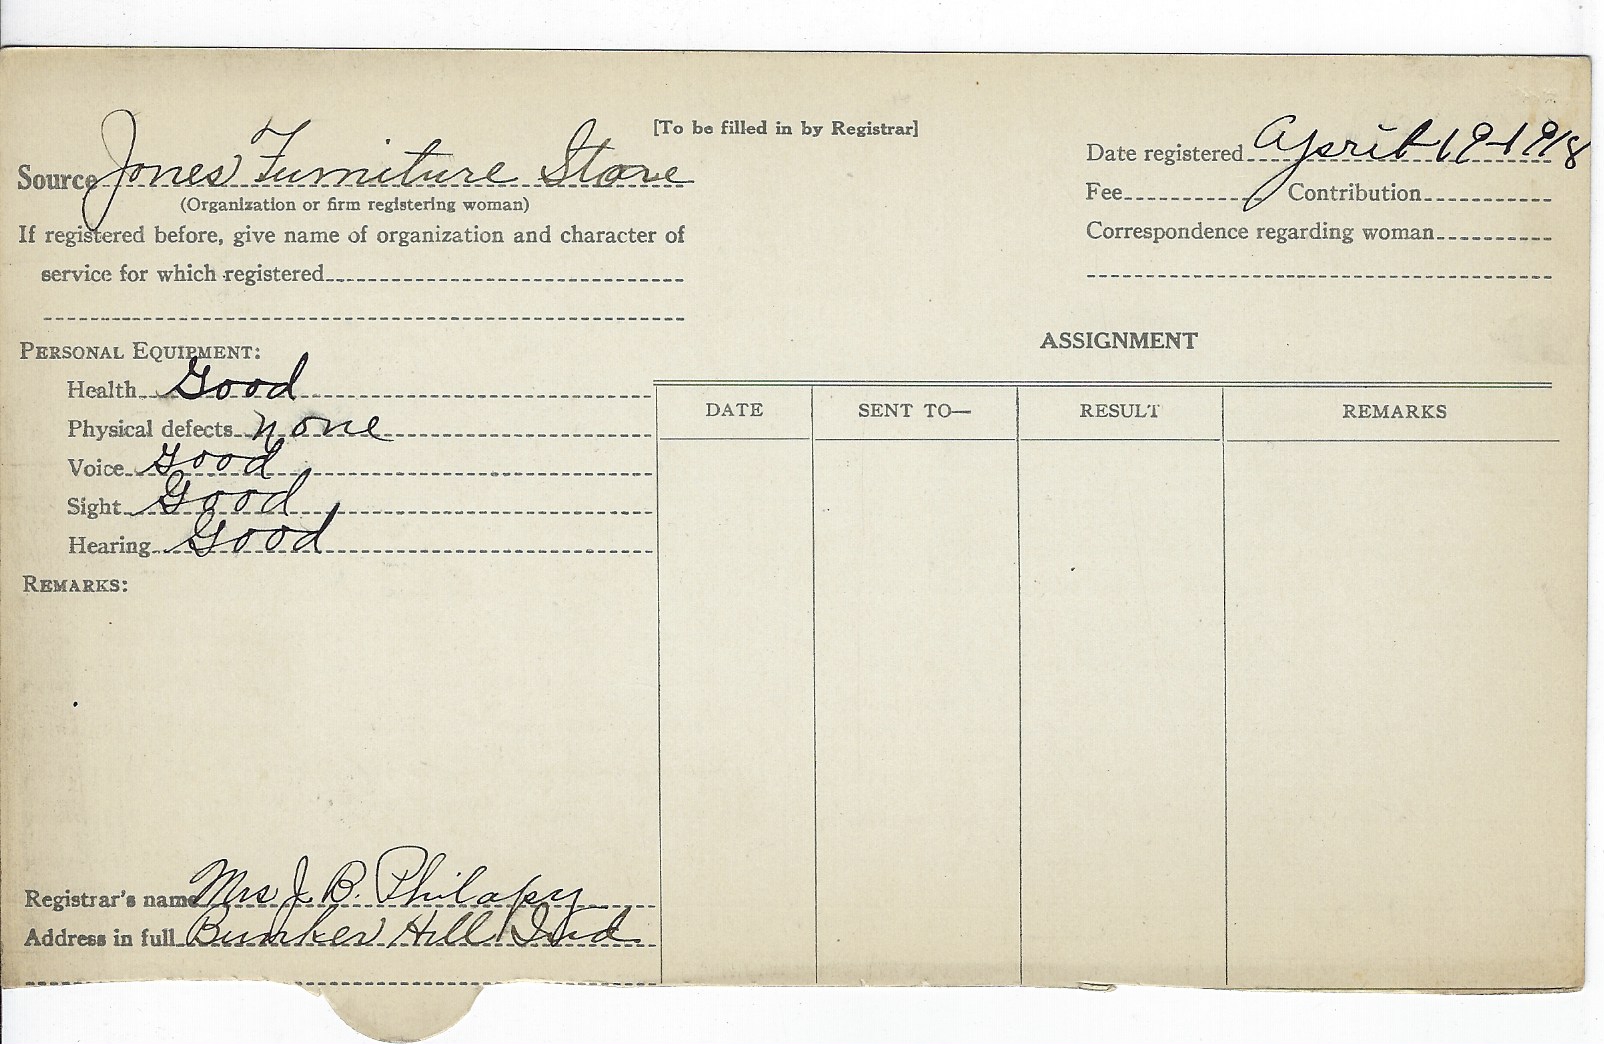 [To be filled in by Registrar]
Source Jones Furniture Store
(Organization or firm registering woman)
If registered before, give name of organization and character of
service for which registered
Date registered April 19-1918
Fee Contribution
Correspondence regarding woman
PERSONAL EQUIPMENT:
Health Good
Physical defects none
Voice Good
Sight Good
Hearing Good
REMARKS:
ASSIGNMENT
DATE SENT TO— RESULT REMARKS
Registrar's name Mrs J. B. Philapy
Address in full Bunker Hill Ind